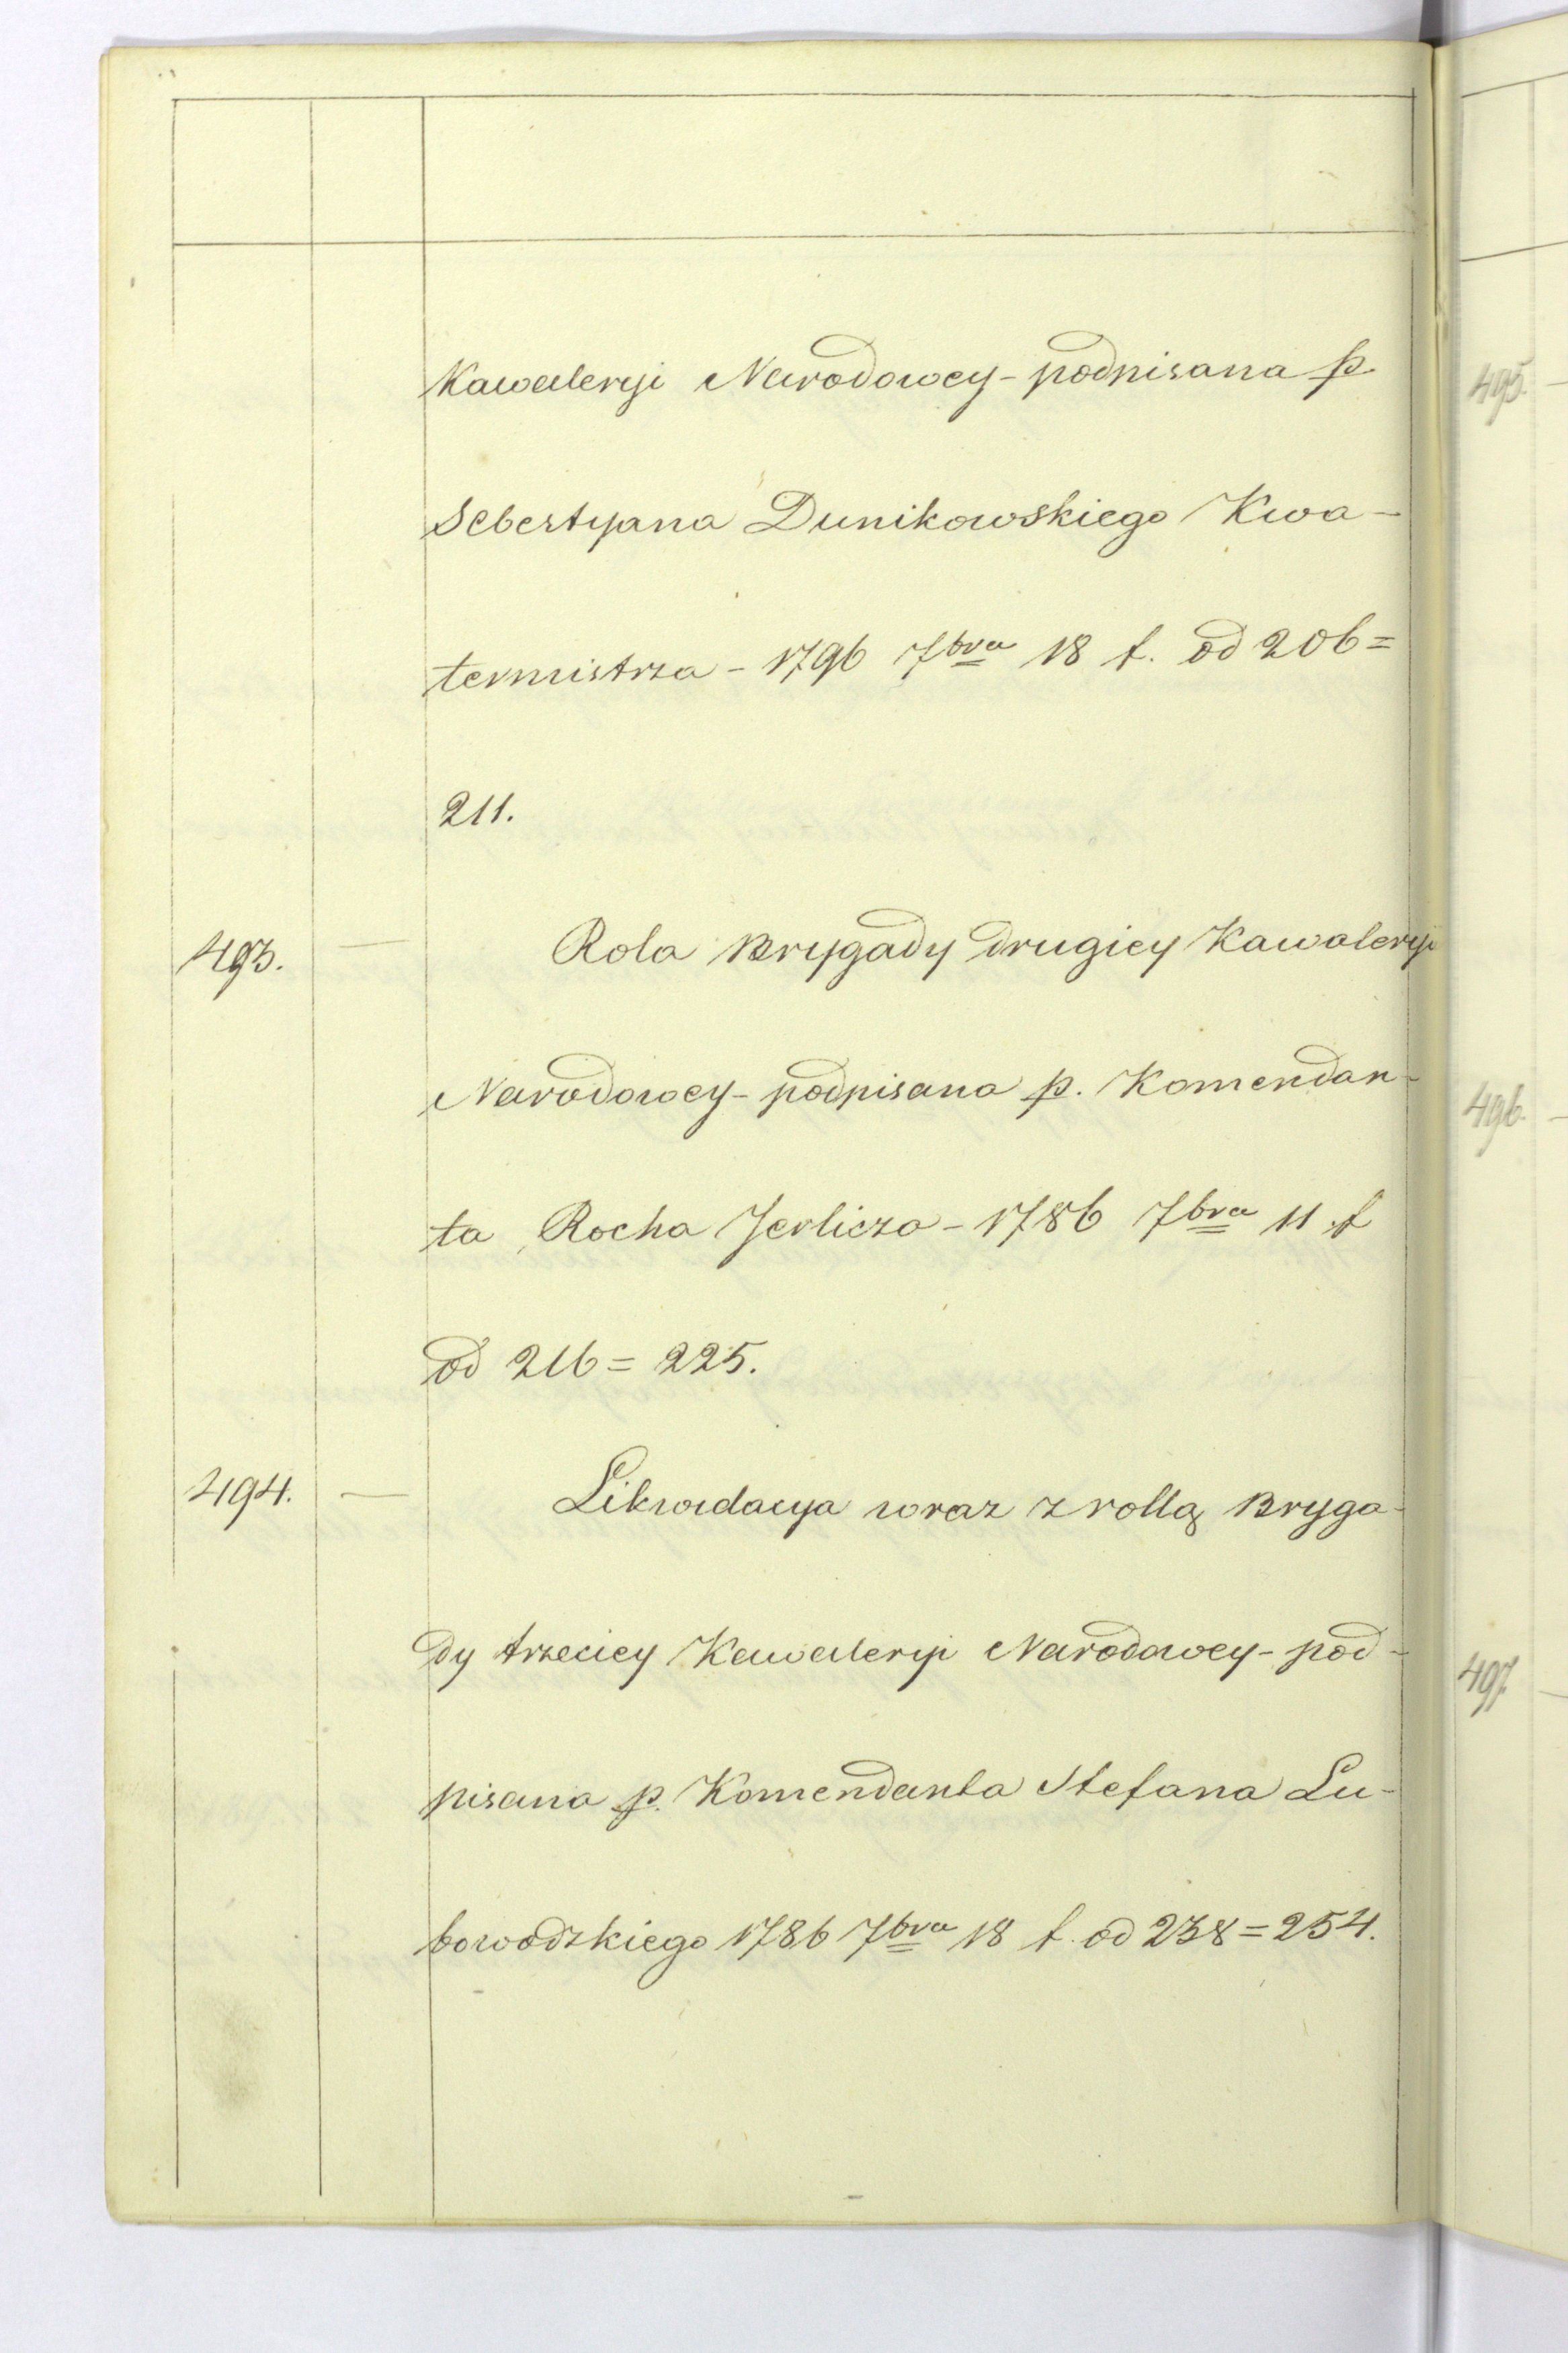 Kawaleryi Narodowey - podpisana p.
Sebestyana Dunikowskiego Kwa-
termistrza - 1796 7bra 18 f. od 206=
211.
493. — Rola Brygady drugiey Kawaleryi
Narodowey - podpisana p. Komendan-
ta Rocha Jerlicza - 1786 7bra 11 f
od 216 = 225.
494. — Likwidacya wraz z rollą Bryga-
dy trzeciey Kawaleryi Narodowey - pod-
pisana p. Komendanta Stefana Lu-
bowodzkiego 1786 7bra 18 f. od 238 = 254.
495. —
496. —
497 —